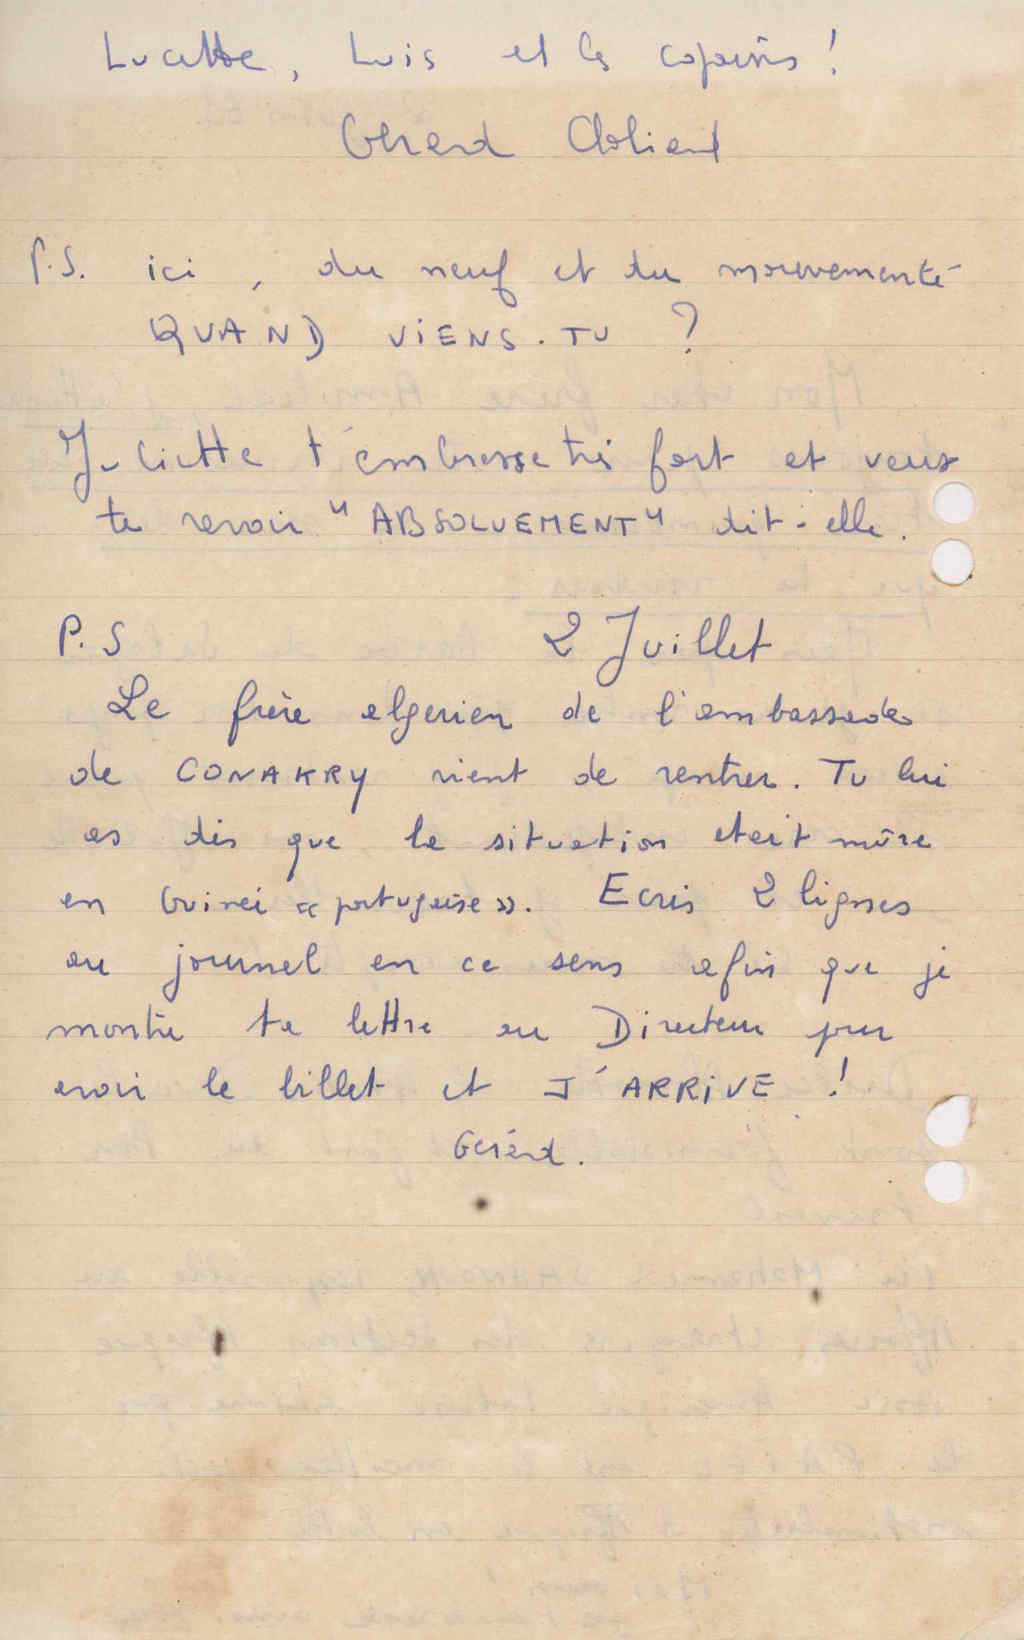 Lucette, Luis et les copains !
Gérard Chaliand
P.S. ici, du neuf et du mouvementé
QUAND VIENS-TU ?
Juliette t'embrasse très fort et veut
te revoir "ABSOLUEMENT" dit-elle.
P.S 2 Juillet
Le frère algerien de l'ambassade
de CONAKRY vient de rentrer. Tu lui
as dis que la situation etait mûre
en Guinée « portugaise ». Ecris 2 lignes
au journal en ce sens afin que je
montre ta lettre au Directeur pour
avoir le billet et J'ARRIVE !
Gérard.